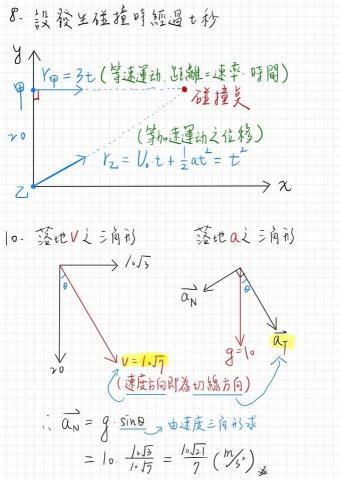 8. 設發生碰撞時經過 t 秒
y
甲
r甲 = 3t (等速運動, 距離=速率·時間)
碰撞点
20
(等加速運動之位移)
r乙 = U₀·t + ½at² = t²
乙
x
10. 落地V之三角形 落地a之三角形
10√3
θ
20
v = 10√7
aN
θ
g=10
aT
(速度方向即為切線方向)
∴ aN = g·sinθ → 由速度三角形求
= 10· 10√3/10√7 = 10√21/7 (m/s²)